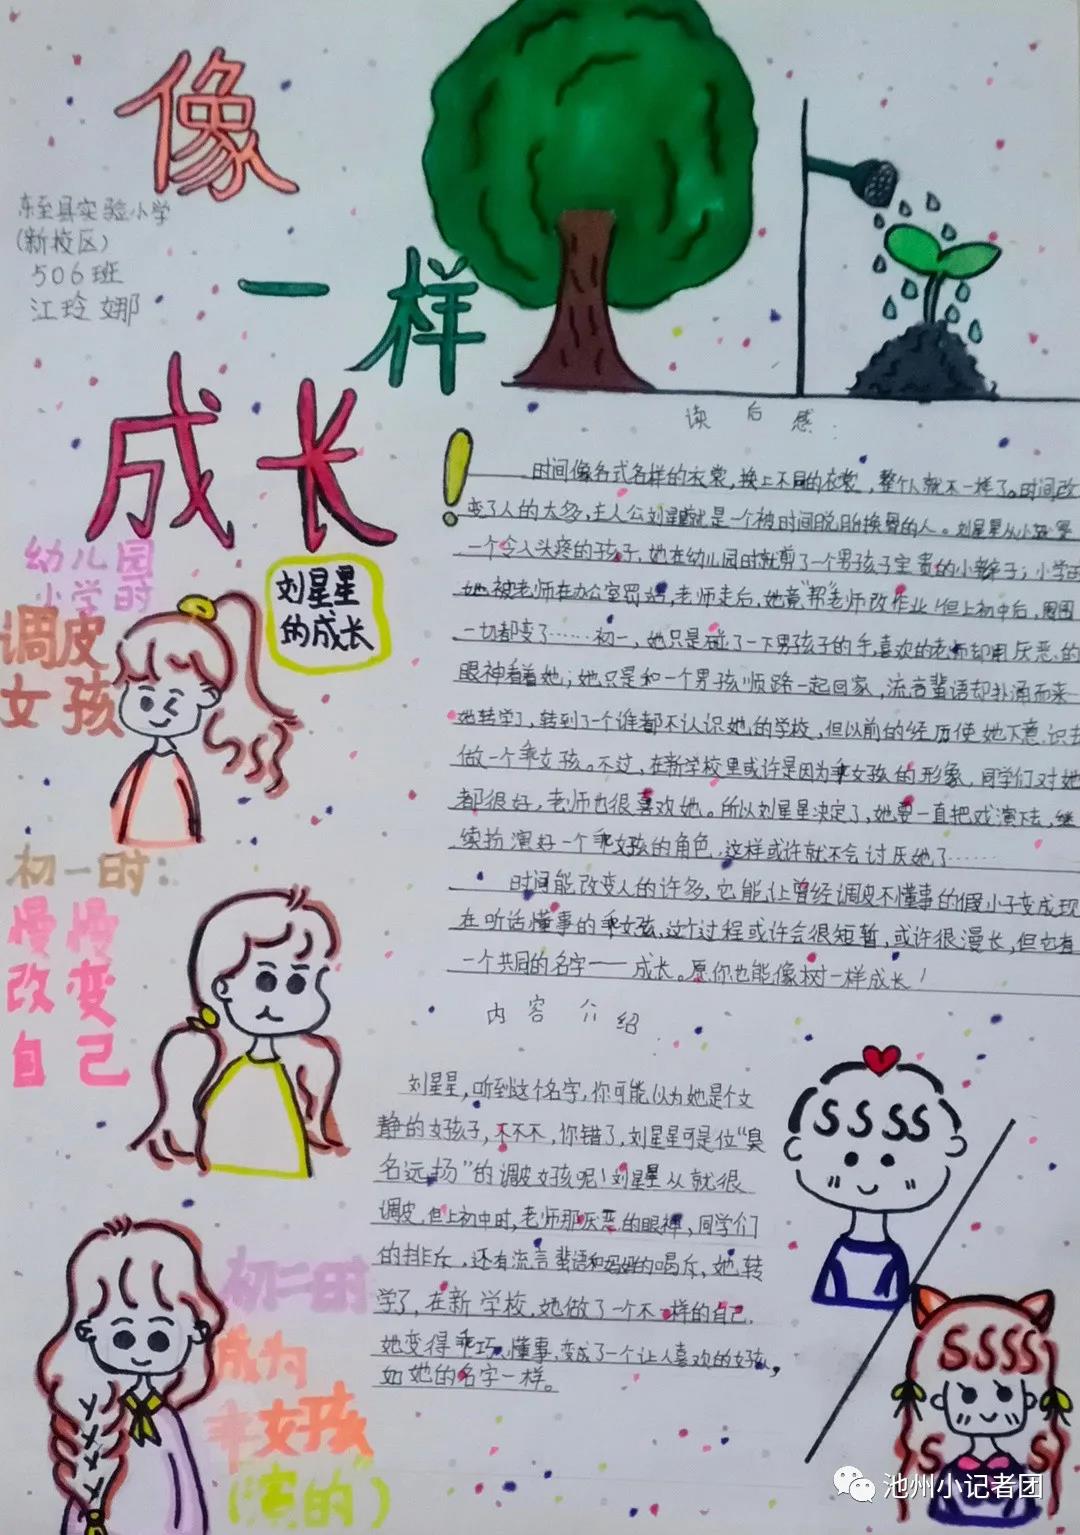 像
一样
成长!
东至县实验小学
(新校区)
506班
江玲娜
读后感:
时间像各式各样的衣裳,换上不同的衣裳,整个人就不一样了。时间改
变了人的太多,主人公刘星星就是一个被时间脱胎换骨的人。刘星星从小就是
一个令人头疼的孩子,她在幼儿园时就剪了一个男孩子宝贵的小辫子;小学时
她被老师在办公室罚站,老师走后,她竟"帮"老师改作业!但上初中后,周围
一切都变了……初一,她只是碰了一下男孩子的手,喜欢的老师却用厌恶的
眼神看着她;她只是和一个男孩顺路一起回家,流言蜚语却扑涌而来…
她转学了,转到了一个谁都不认识她的学校,但以前的经历使她下意识去
做一个乖女孩。不过,在新学校里或许是因为乖女孩的形象,同学们对她
都很好,老师也很喜欢她。所以刘星星决定了,她要一直把戏演下去,继
续扮演好一个乖女孩的角色,这样或许就不会讨厌她了……
时间能改变人的许多,它能让曾经调皮不懂事的假小子变成现
在听话懂事的乖女孩,这个过程或许会很短暂,或许很漫长,但它有
一个共同的名字——成长。愿你也能像树一样成长!
幼儿园
小学时
调皮
女孩
刘星星
的成长
初一时:
慢慢
改变
自己
初二时
成为
乖女孩
(演的")
内容介绍
刘星星,听到这个名字,你可能以为她是个文
静的女孩子,不不不,你错了,刘星星可是位"臭
名远扬"的调皮女孩呢!刘星星从就很
调皮,但上初中时,老师那厌恶的眼神,同学们
的排斥,还有流言蜚语和妈妈的喝斥,她转
学了,在新学校,她做了一个不一样的自己,
她变得乖巧、懂事,变成了一个让人喜欢的女孩,
如她的名字一样。
SSSS
SSSS
S
S
池州小记者团